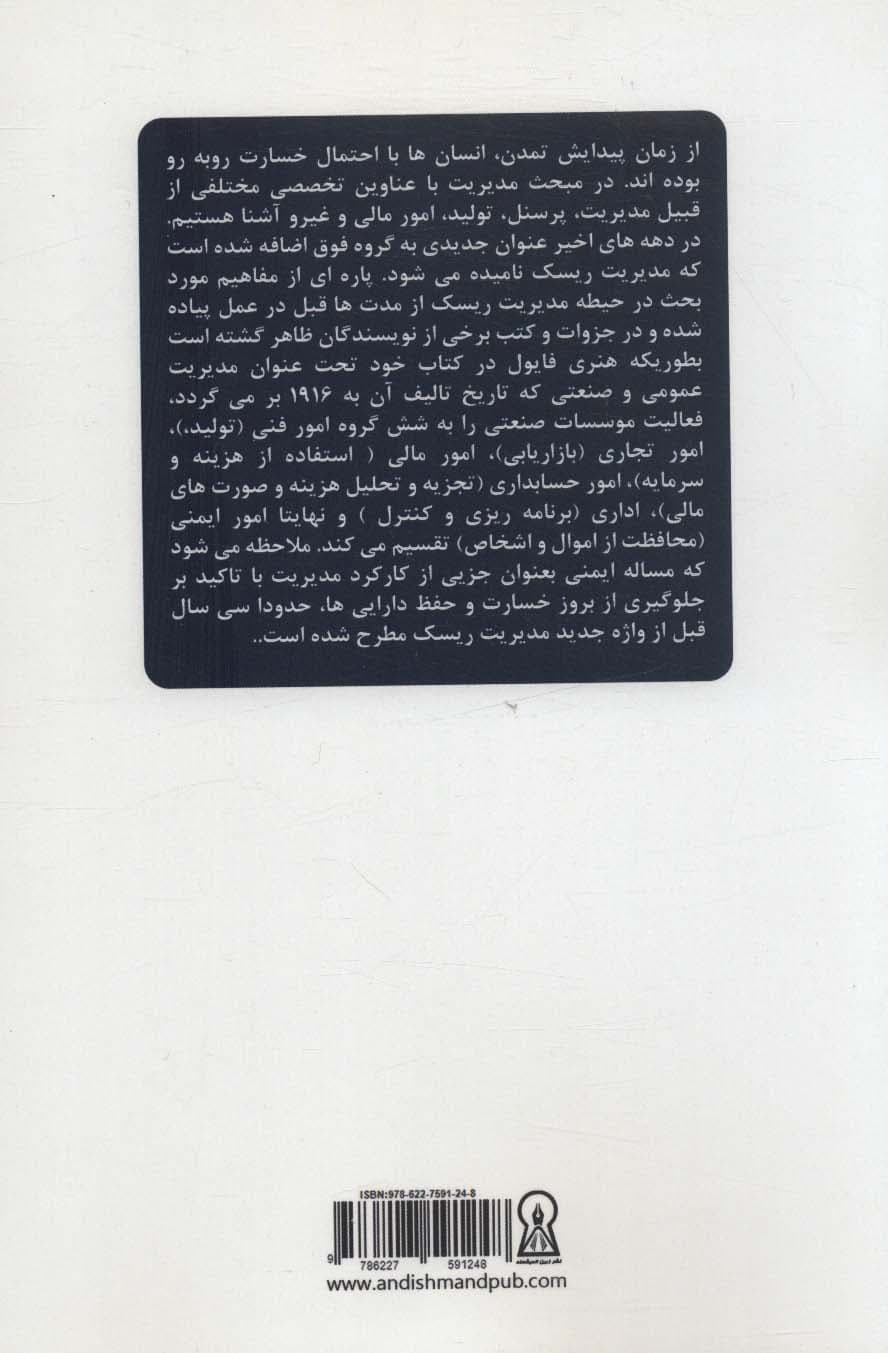 از زمان پیدایش تمدن، انسان ها با احتمال خسارت روبه رو
بوده اند. در مبحث مدیریت با عناوین تخصصی مختلفی از
قبیل مدیریت، پرسنل، تولید، امور مالی و غیرو آشنا هستیم.
در دهه های اخیر عنوان جدیدی به گروه فوق اضافه شده است
که مدیریت ریسک نامیده می شود. پاره ای از مفاهیم مورد
بحث در حیطه مدیریت ریسک از مدت ها قبل در عمل پیاده
شده و در جزوات و کتب برخی از نویسندگان ظاهر گشته است
بطوریکه هنری فایول در کتاب خود تحت عنوان مدیریت
عمومی و صنعتی که تاریخ تالیف آن به ۱۹۱۶ بر می گردد،
فعالیت موسسات صنعتی را به شش گروه امور فنی (تولید،)،
امور تجاری (بازاریابی)، امور مالی ( استفاده از هزینه و
سرمایه)، امور حسابداری (تجزیه و تحلیل هزینه و صورت های
مالی)، اداری (برنامه ریزی و کنترل ) و نهایتا امور ایمنی
(محافظت از اموال و اشخاص) تقسیم می کند. ملاحظه می شود
که مساله ایمنی بعنوان جزیی از کارکرد مدیریت با تاکید بر
جلوگیری از بروز خسارت و حفظ دارایی ها، حدودا سی سال
قبل از واژه جدید مدیریت ریسک مطرح شده است..
ISBN:978-622-7591-24-8
9 786227 591248
www.andishmandpub.com